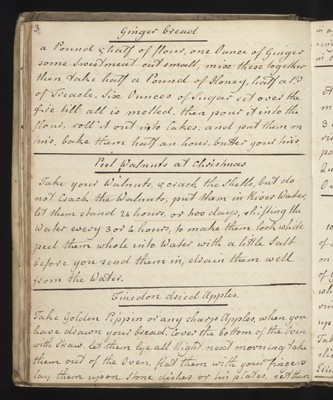 3
Ginger bread
a Pound & half of flour, one Ounce of Ginger
some Sweetmeat cut small, mix these together
then take half a Pound of Honey, half a Pd
of Treacle, Six Ounces of Sugar set over the
fire till all is melted, then pour it into the
flour, roll it out into Cakes, and put them on
tins, bake them half an hour, butter your tins
Peel Walnuts at Christmas
Take your Walnuts, & crack the Shells, but do
not Crack the Walnuts, put them in River Water,
let them stand 24 hours, or two days, shifting the
Water every 3 or 4 hours, to make them look white
peel them whole into Water with a little Salt
before you send them in, drain them well
from the Water.
dried Apples.
Take Golden Pippin or any sharp Apples, when you
have drawn your bread, Cover the bottom of the Oven
with Straw let them lye all Night, next morning take
them out of the Oven, flat them with your fingers
lay them upon Stone dishes or tin plates, set them